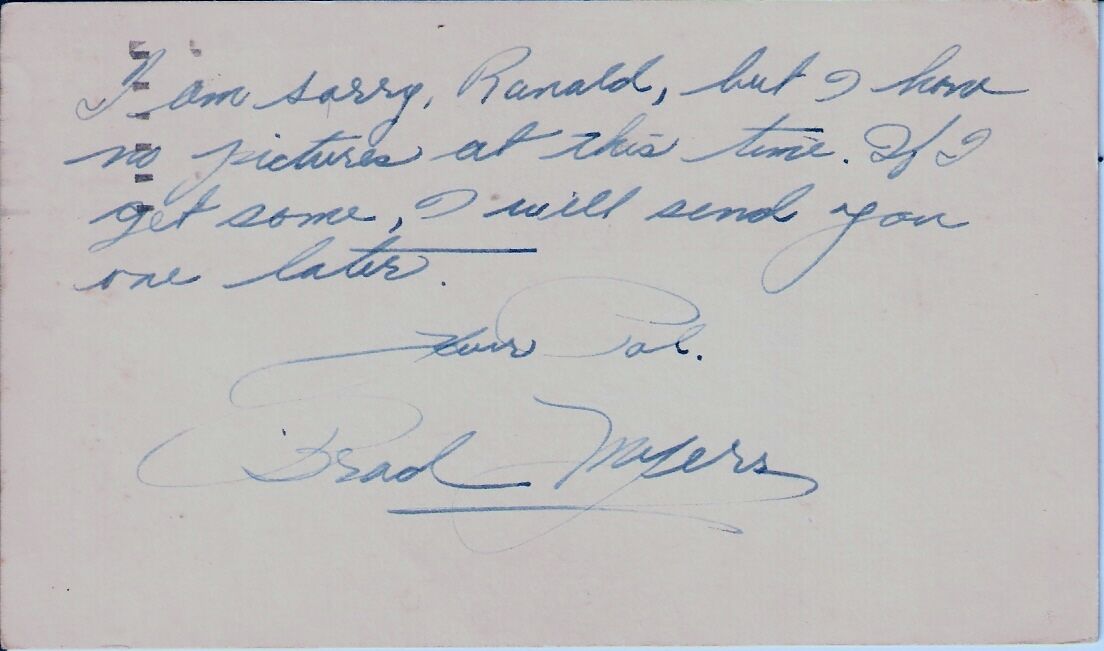 I am sorry, Ronald, but I have
no pictures at this time. If I
get some, I will send you
one later.
Your Pal.
Brad Myers